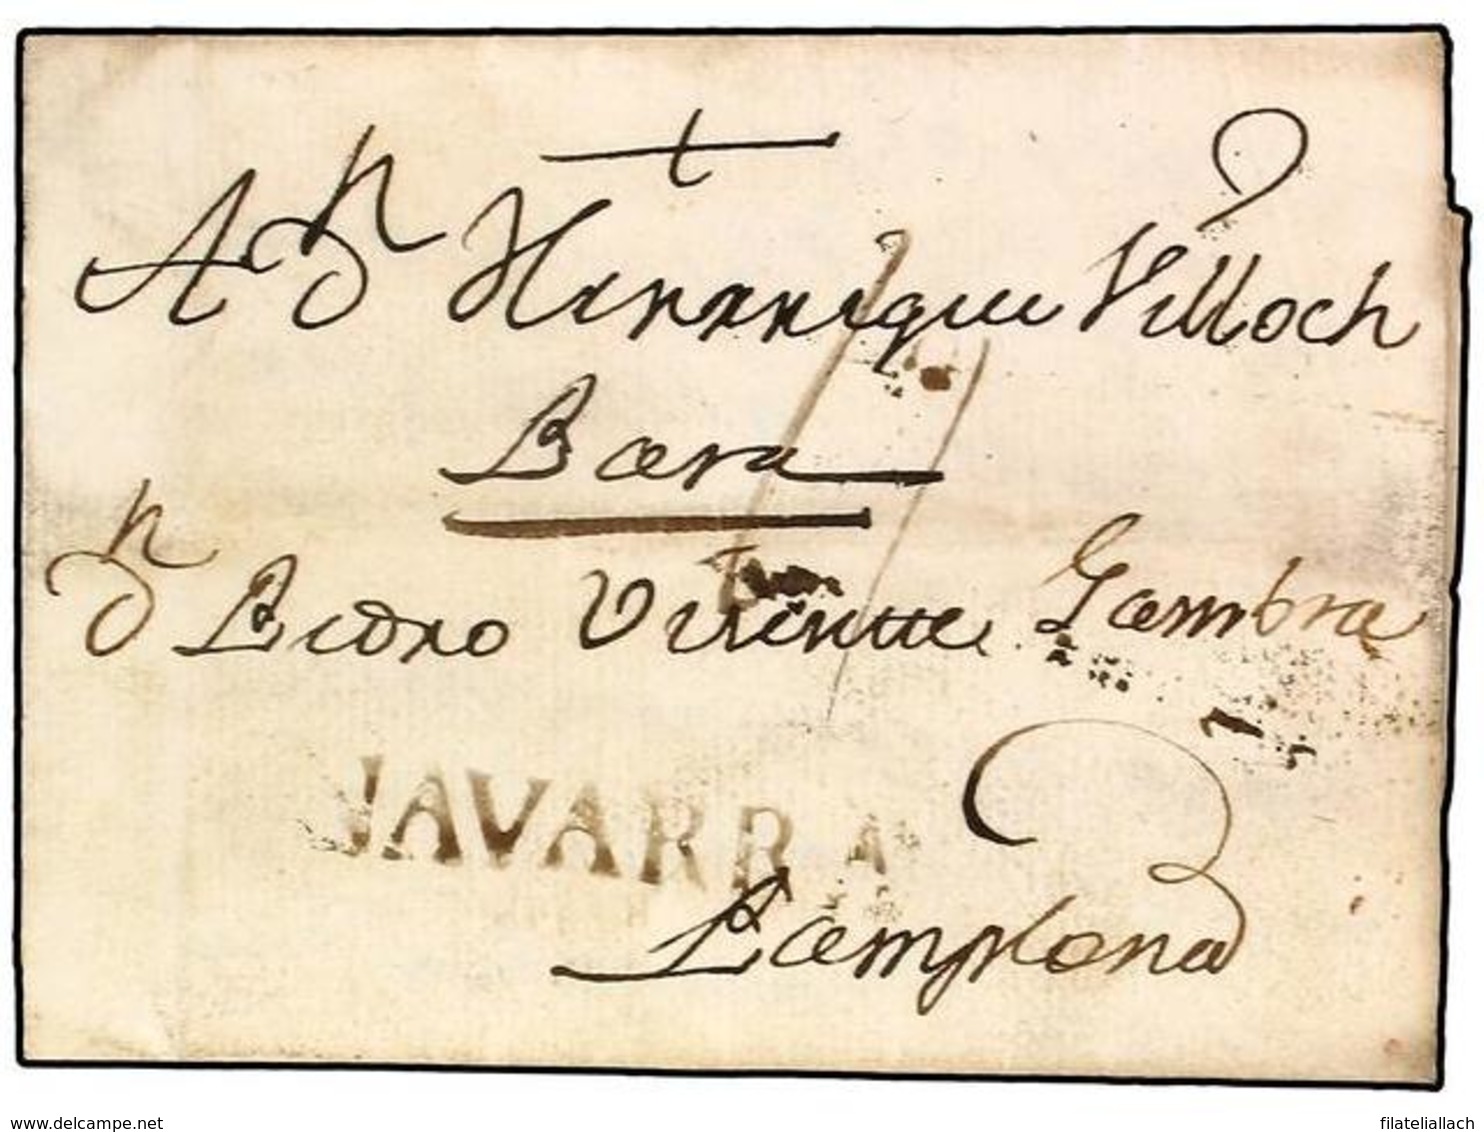 A Dn Henrrique Villoch
Bera
Dn Pedro Vicente Gambra
NAVARRA
Pamplona
www.delcampe.net
filateliallach